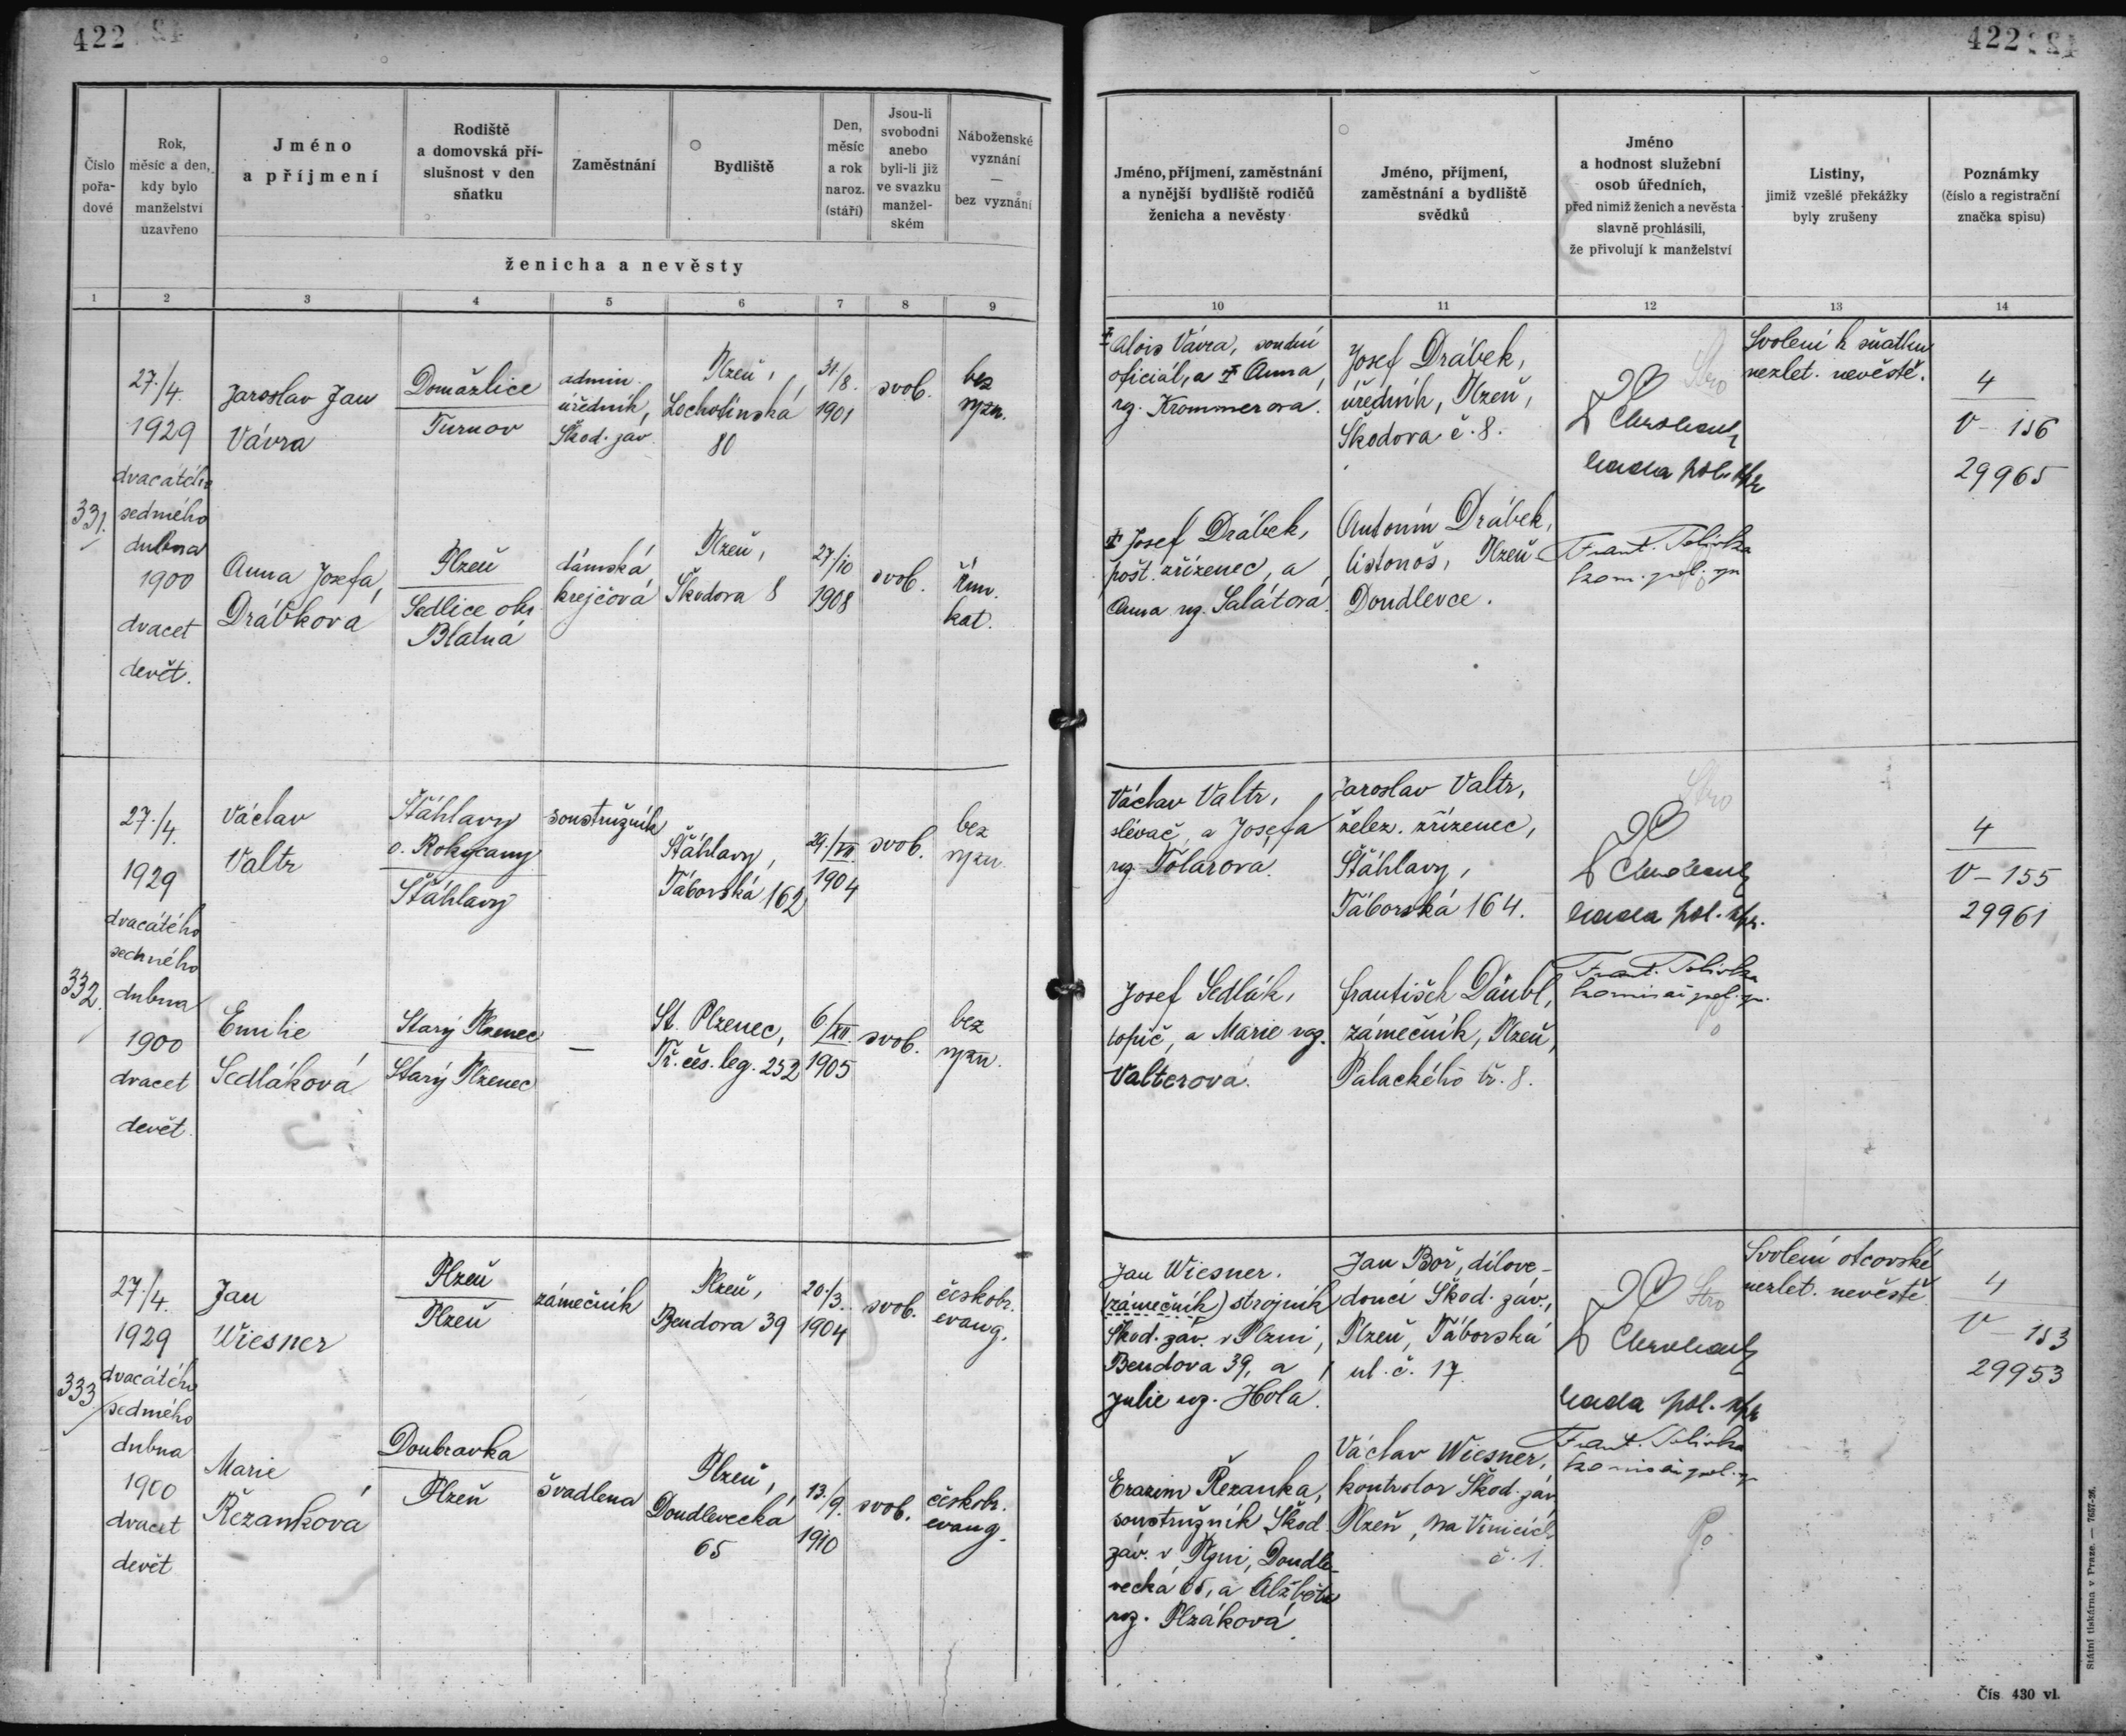 422
422
Číslo
pořa-
dové
Rok,
měsíc a den,
kdy bylo
manželství
uzavřeno
Jméno
a příjmení
Rodiště
a domovská pří-
slušnost v den
sňatku
Zaměstnání
Bydliště
Den,
měsíc
a rok
naroz.
(stáří)
Jsou-li
svobodni
anebo
byli-li již
ve svazku
manžel-
ském
Náboženské
vyznání
—
bez vyznání
ženicha a nevěsty
Jméno, příjmení, zaměstnání
a nynější bydliště rodičů
ženicha a nevěsty
Jméno, příjmení,
zaměstnání a bydliště
svědků
Jméno
a hodnost služební
osob úředních,
před nimiž ženich a nevěsta
slavně prohlásili,
že přivolují k manželství
Listiny,
jimiž vzešlé překážky
byly zrušeny
Poznámky
(číslo a registrační
značka spisu)
1 2 3 4 5 6 7 8 9 10 11 12 13 14
331.
27./4.
1929
dvacátého
sedmého
dubna
1900
dvacet
devět.
Jaroslav Jan
Vávra
Domažlice
Turnov
admin.
úředník,
Škod. záv.
Plzeň,
Lochotínská
80
31./8.
1901
svob.
bez
vyzn.
† Alois Vávra, soudní
oficiál, a † Anna,
roz. Krommerová.
Josef Drábek,
úředník, Plzeň,
Škodova č. 8.
rada pol. spr.
Svolení k sňatku
nezlet. nevěstě.
4
V - 156
29965
Anna Josefa
Drábková
Plzeň
Sedlice okr.
Blatná
dámská
krejčová
Plzeň,
Škodova 8
27/10
1908
svob.
řím.
kat.
† Josef Drábek,
pošt. zřízenec, a
Anna roz. Salátová.
Antonín Drábek,
listonoš, Plzeň -
Doudlevce.
Frant. Polívka
kom. pol. spr.
332.
27./4.
1929
dvacátého
sedmého
dubna
1900
dvacet
devět.
Václav
Valtr
Šťáhlavy
o. Rokycany
Šťáhlavy
soustružník
Šťáhlavy,
Táborská 162
29./VII.
1904
svob.
bez
vyzn.
Václav Valtr,
slévač, a Josefa
roz. Tolarová.
Jaroslav Valtr,
želez. zřízenec,
Šťáhlavy,
Táborská 164.
rada pol. spr.
4
V - 155
29961
Emilie
Sedláková
Starý Plzenec
Starý Plzenec
—
St. Plzenec,
Tř. čes. leg. 252
6./XII.
1905
svob.
bez
vyzn.
Josef Sedlák,
topič, a Marie roz.
Valterová.
František Däubl,
zámečník, Plzeň,
Palackého tř. 8.
Frant. Polívka
komisař pol. spr.
333
27./4.
1929
dvacátého
sedmého
dubna
1900
dvacet
devět
Jan
Wiesner
Plzeň
Plzeň
zámečník
Plzeň,
Bendova 39
20./3.
1904
svob.
českobr.
evang.
Jan Wiesner.
(zámečník) strojník
Škod. záv. v Plzni,
Bendova 39, a
Julie roz. Holá.
Jan Boř, dílove-
doucí Škod. záv.,
Plzeň, Táborská
ul. č. 17.
rada pol. spr.
Svolení otcovské
nezlet. nevěstě
4
V - 153
29953
Marie
Řezanková
Doubravka
Plzeň
švadlena
Plzeň,
Doudlevecká
65
13./9.
1910
svob.
českobr.
evang.
Erazim Řezanka,
soustružník Škod.
záv. v Plzni, Doudle-
vecká 65, a Alžběta
roz. Plzáková
Václav Wiesner,
kontrolor Škod. záv.
Plzeň, Na Vinicích
č. 1.
Frant. Polívka
komisař pol. spr.
Státní tiskárna v Praze. — 7657-26.
Čís. 430 vl.